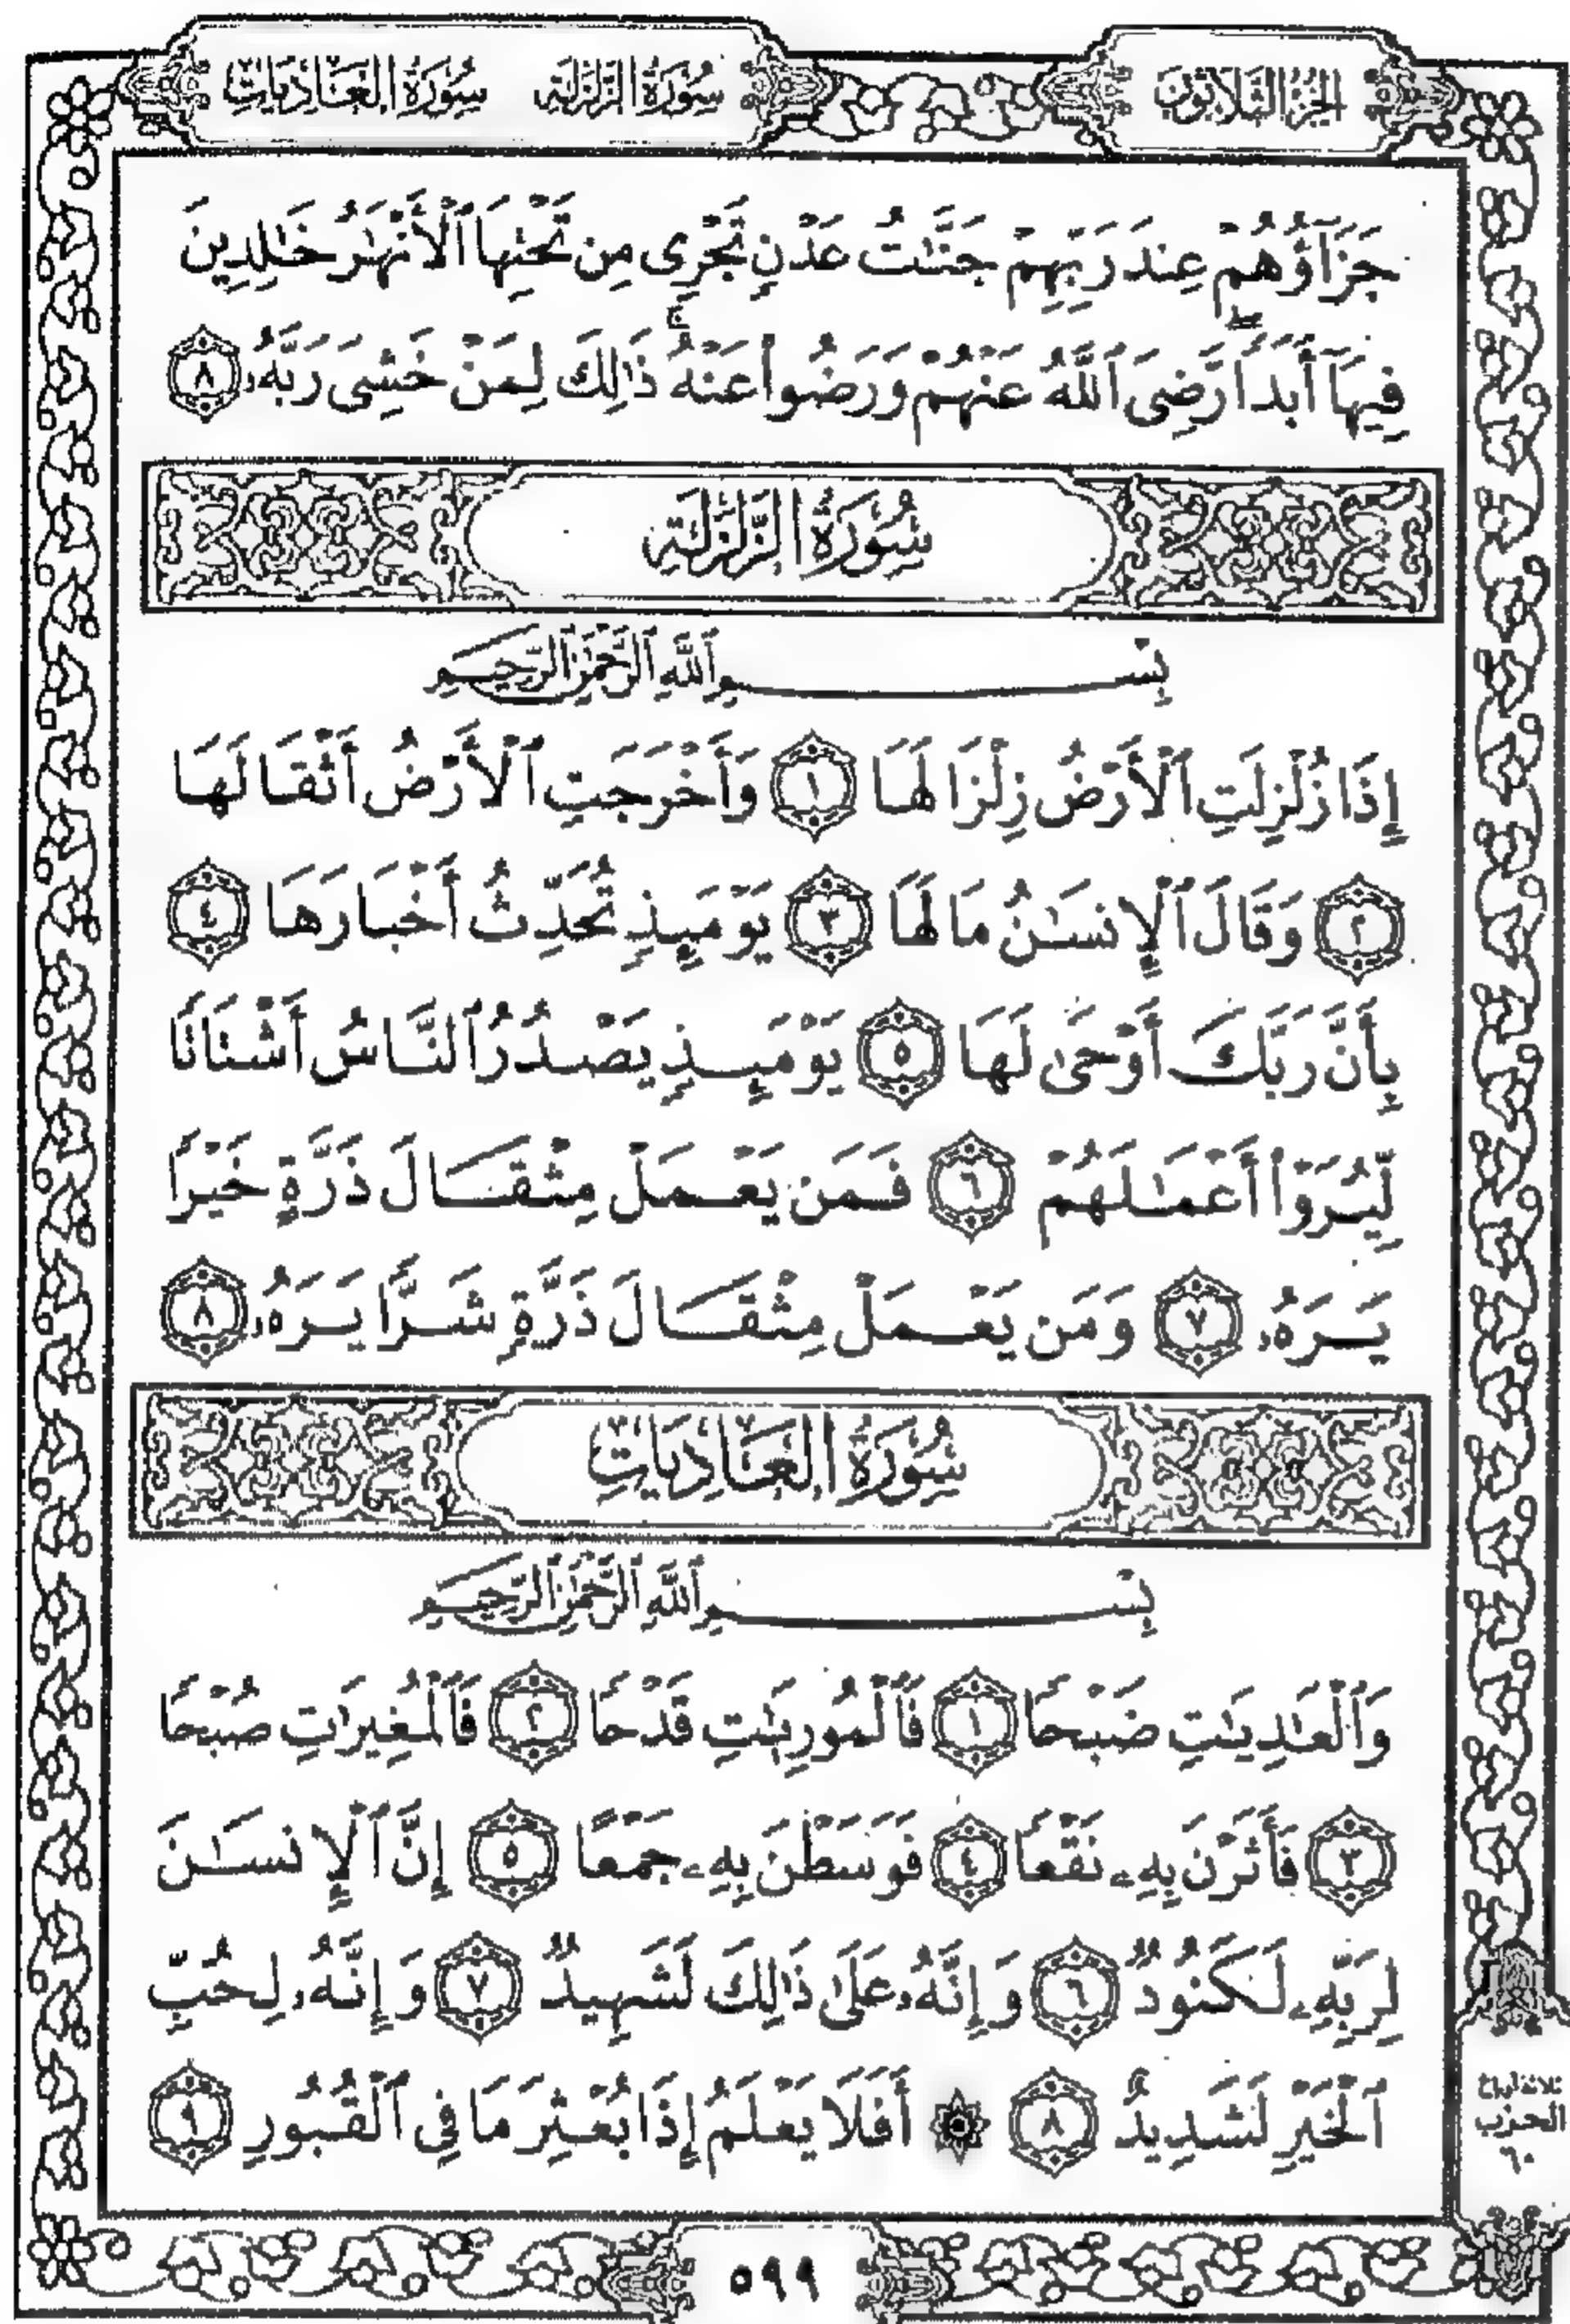 الجزء الثلاثون
سورة الزلزلة سورة العاديات
جَزَآؤُهُمْ عِندَ رَبِّهِمْ جَنَّٰتُ عَدْنٍ تَجْرِى مِن تَحْتِهَا ٱلْأَنْهَٰرُ خَٰلِدِينَ
فِيهَآ أَبَدًا ۖ رَّضِىَ ٱللَّهُ عَنْهُمْ وَرَضُوا۟ عَنْهُ ۚ ذَٰلِكَ لِمَنْ خَشِىَ رَبَّهُۥ ٨
سُورَةُ الزَّلْزَلَةِ
بِسْمِ ٱللَّهِ ٱلرَّحْمَٰنِ ٱلرَّحِيمِ
إِذَا زُلْزِلَتِ ٱلْأَرْضُ زِلْزَالَهَا ١ وَأَخْرَجَتِ ٱلْأَرْضُ أَثْقَالَهَا
٢ وَقَالَ ٱلْإِنسَٰنُ مَا لَهَا ٣ يَوْمَئِذٍ تُحَدِّثُ أَخْبَارَهَا ٤
بِأَنَّ رَبَّكَ أَوْحَىٰ لَهَا ٥ يَوْمَئِذٍ يَصْدُرُ ٱلنَّاسُ أَشْتَاتًا
لِّيُرَوْا۟ أَعْمَٰلَهُمْ ٦ فَمَن يَعْمَلْ مِثْقَالَ ذَرَّةٍ خَيْرًا
يَرَهُۥ ٧ وَمَن يَعْمَلْ مِثْقَالَ ذَرَّةٍ شَرًّا يَرَهُۥ ٨
سُورَةُ الْعَادِيَاتِ
بِسْمِ ٱللَّهِ ٱلرَّحْمَٰنِ ٱلرَّحِيمِ
وَٱلْعَٰدِيَٰتِ ضَبْحًا ١ فَٱلْمُورِيَٰتِ قَدْحًا ٢ فَٱلْمُغِيرَٰتِ صُبْحًا
٣ فَأَثَرْنَ بِهِۦ نَقْعًا ٤ فَوَسَطْنَ بِهِۦ جَمْعًا ٥ إِنَّ ٱلْإِنسَٰنَ
لِرَبِّهِۦ لَكَنُودٌ ٦ وَإِنَّهُۥ عَلَىٰ ذَٰلِكَ لَشَهِيدٌ ٧ وَإِنَّهُۥ لِحُبِّ
ٱلْخَيْرِ لَشَدِيدٌ ٨ ۞ أَفَلَا يَعْلَمُ إِذَا بُعْثِرَ مَا فِى ٱلْقُبُورِ ٩
ثلاثة أرباع
الحزب
٦٠
٥٩٩